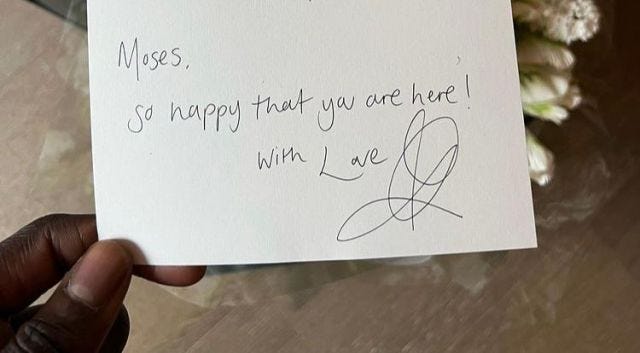 Moses,
so happy that you are here!
With Love